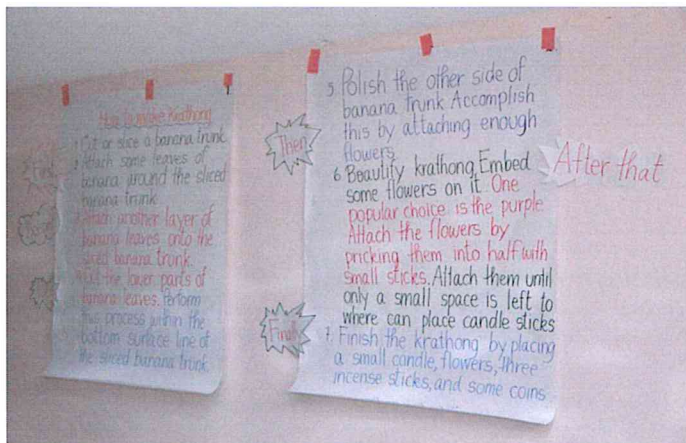 How to make Krathong
1. Cut or slice a banana trunk
2. Attach some leaves of
banana around the sliced
banana trunk
3. Attach another layer of
banana leaves onto the
sliced banana trunk.
4. Cut the lower parts of
banana leaves. Perform
this process within the
bottom surface line of
the sliced banana trunk
First
Then
5. Polish the other side of
banana trunk Accomplish
this by attaching enough
flowers
6. Beautify krathong. Embed
some flowers on it One
popular choice is the purple
Attach the flowers by
pricking them into half with
small sticks. Attach them until
only a small space is left to
where can place candle sticks
After that
Finally
7. Finish the krathong by placing
a small candle, flowers, three
incense sticks, and some coins